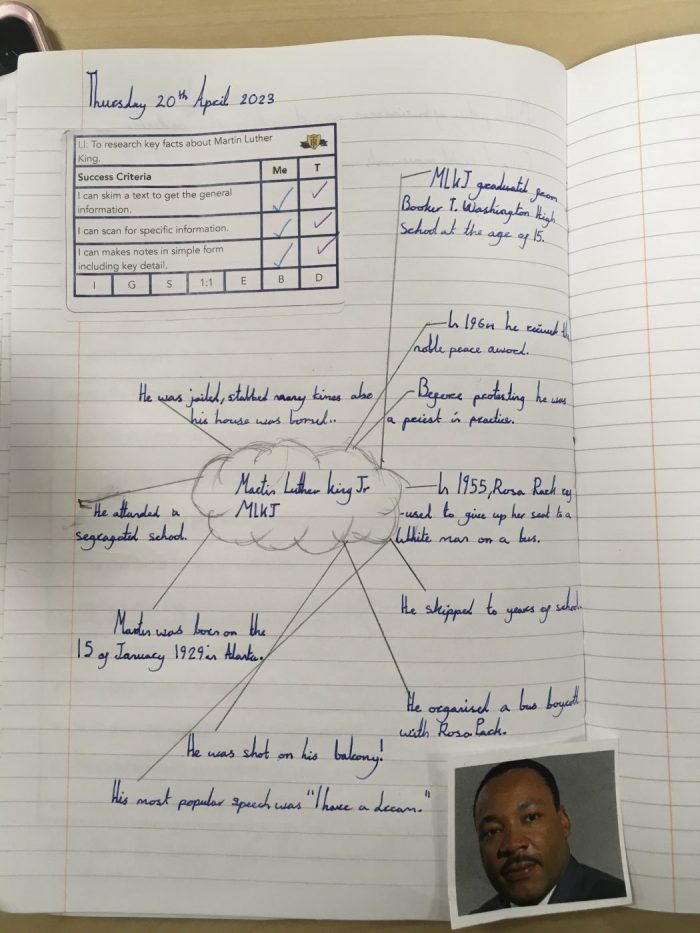 Thursday 20th April 2023
LI: To research key facts about Martin Luther
King.
Success Criteria Me T
I can skim a text to get the general
information.
I can scan for specific information.
I can makes notes in simple form
including key detail.
I G S 1:1 E B D
MLKJ graduated from
Booker T. Washington High
School at the age of 15.
In 1964 he recived the
noble peace award.
He was jailed, stabbed many times also
his house was bomed..
Before protesting he was
a priest in practice.
Martin Luther king Jr
MLKJ
In 1955, Rosa Pack ref
-used to give up her seat to a
White man on a bus.
He attanded a
segragated school.
He skipped to years of school.
Martin was born on the
15 of January 1929 in Atlanta.
He organised a bus boycott
with Rosa Pack.
He was shot on his balkony!
His most popular speech was "I have a dream."